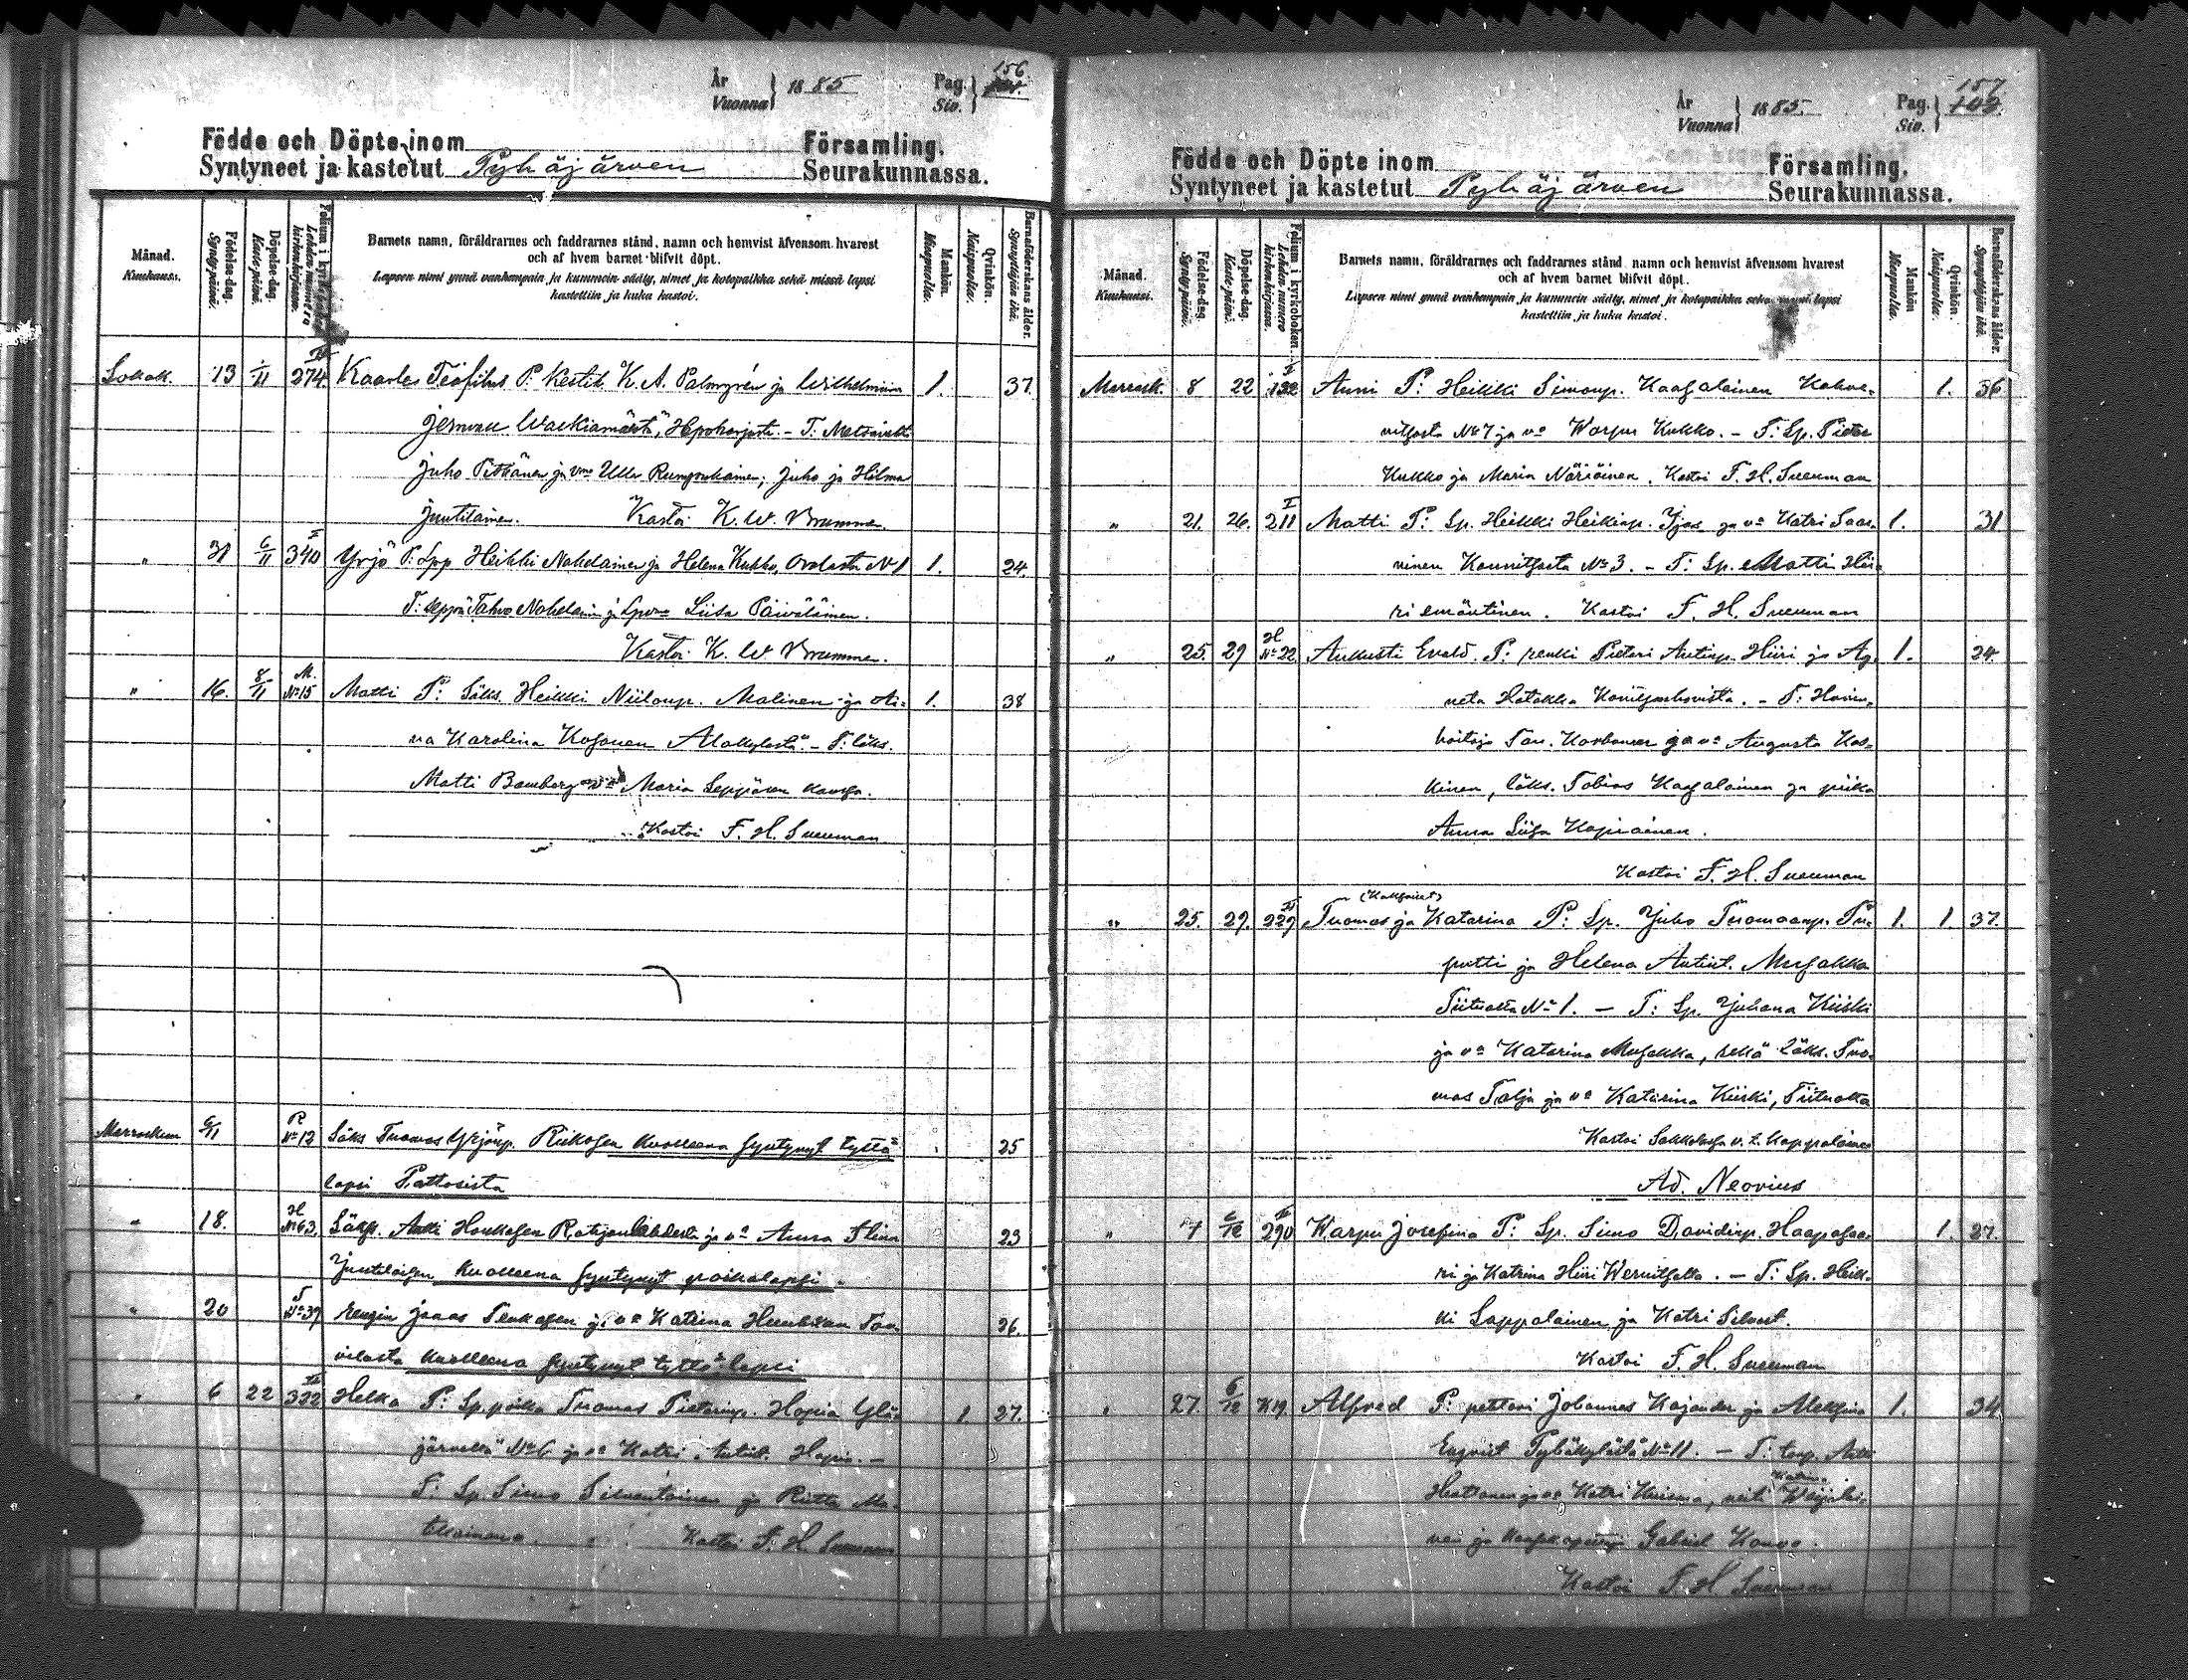 År
Vuonna
1885
Pag.
Siv.
156
Födde och Döpte inom
Församling.
Syntyneet ja kastetut Pyhäjärven Seurakunnassa.
Månad.
Kuukausi.
Födelse-dag.
Synty-päivä.
Döpelse-dag.
Kaste-päivä.
Folium i kyrkoboken.
Lehden numero kirkonkirjassa.
Barnets namn, föräldrarnes och faddrarnes stånd, namn och hemvist äfvensom hvarest
och af hvem barnet blifvit döpt.
Lapsen nimi ynnä vanhempain ja kummein sääty, nimet ja kotopaikka sekä missä lapsi
kastettiin ja kuka kastoi.
Mankön.
Miespuolia.
Qvinkön.
Naispuolia.
Barnaföderskans ålder.
Synnyttäjän ikä.
Lokak. 13 1/11 274 Kaarlo Teofilus P. Kestik. K. A. Palmgrén ja Wilhelmina 1. 37.
T. Metsänvahti
Juho Pitkänen ja vmo Ulla Rumpunkainen; Juho ja Hilma
Juutilainen. Kasti K. W. Brummer.
" 31 6/11 340 Yrjö P. Lpp Heikki Nahelainen ja Helena Kukko, N 1 1. 24.
T: seppä Tahvo ja Lpvmo Liisa Päiväläinen.
Kasti K. W. Brummer.
" 16. 8/11 M. No 15 Matti P: Läks. Heikki Niilonp. Malinen ja Ai= 1. 38
na Karolina Kosonen Alakylästä. – T: läks.
Matti Bomberg va Maria Seppäsen kanssa.
Kastoi F. H. Suerman
Marraskuu 6/11 R No 12 Läks Tuomas Yrjönp. Riikosen kuolleena syntynyt tyttö 25
lapsi
" 18. H No 63. Läks. Antti Houkasen ja va Anna Stina 23
Juutilaisen kuolleena syntynyt poikalapsi.
" 20 T No 37 rengin Jsaas ja va Katrina 26.
kuolleena syntynyt tyttö lapsi
" 6 22 332 Helka P: Lp.poika Tuomas Pietarinp. Hopia Ylä= 1. 27.
järveltä No 6 ja va Katri Antint. Hopia. –
T: Lp. Simo Silventoinen ja Riitta Ma=
tikainen. Kastoi F. H. Suerman
År
Vuonna
1885.
Pag.
Siv.
157
Födde och Döpte inom
Församling.
Syntyneet ja kastetut Pyhäjärven Seurakunnassa.
Månad.
Kuukausi.
Födelse-dag.
Synty-päivä.
Döpelse-dag.
Kaste-päivä.
Folium i kyrkoboken.
Lehden numero kirkonkirjassa.
Barnets namn, föräldrarnes och faddrarnes stånd, namn och hemvist äfvensom hvarest
och af hvem barnet blifvit döpt.
Lapsen nimi ynnä vanhempain ja kummein sääty, nimet ja kotopaikka sekä missä lapsi
kastettiin ja kuka kastoi.
Mankön
Miespuolia.
Qvinkön.
Naispuolia.
Barnaföderskans ålder.
Synnyttäjän ikä.
Marrask. 8 22 132 Anni P: Heikki Simonp. Kaasalainen Kahve= 1. 36
nitsasta No 7 ja va Warpu Kukko. – T: Lp. Pietar
Kukko ja Maria Näriäinen. Kastoi F. H. Suerman
" 21. 26. I 211 Matti P: Lp. Heikki Heikinp. Ijäs ja va Katri Saa= 1. 31
rinen Konnitsasta No 3. – T: Lp. Matti Hii=
ri emäntineen. Kastoi F. H. Suerman
" 25. 29 H No 22 Aukusti Evald. P: renki Pietari Antinp. Hiiri ja Ag= 1. 24.
neta Hatakka – T: Hovin=
hoitaja Tan. Korhonen ja va Augusta Kos=
kinen, läks. Tobias Kaasalainen ja piika
Anna Liisa Kopiainen.
Kastoi F. H. Suerman
(Kaksoiset)
" 25. 29. 229 Tuomas ja Katarina P: Lp. Juho Tuomaanp. Pu= 1. 1. 37.
putti ja Helena Antint. Musakka
Tiitualta No 1. – T: Lp. Juhana Kiiski
ja va Katarina Musakka, sekä läks. Tuo=
mas Talja ja va Katarina Kiiski, Tiitualta
Kastoi Sakkolassa v. t. kappalainen
Ad. Neovius
" 7 6/12 290 Warpu Josefina P: Lp. Simo Davidinp. Haapasaa= 1. 27.
ri ja Katrina Hiiri Wernitsalta. – T: Lp. Heik=
ki Lappalainen ja Katri Silvast.
Kastoi F. H. Suerman
" 27. 6/12 K 19. Alfred P: petteri Johannes Kajander ja 1. 34
Enqvist Pyhäkylästä No 11. – T: torp. Antti
ja va Katri neiti Katrina
ja Gabriel
Kastoi F. H. Suerman